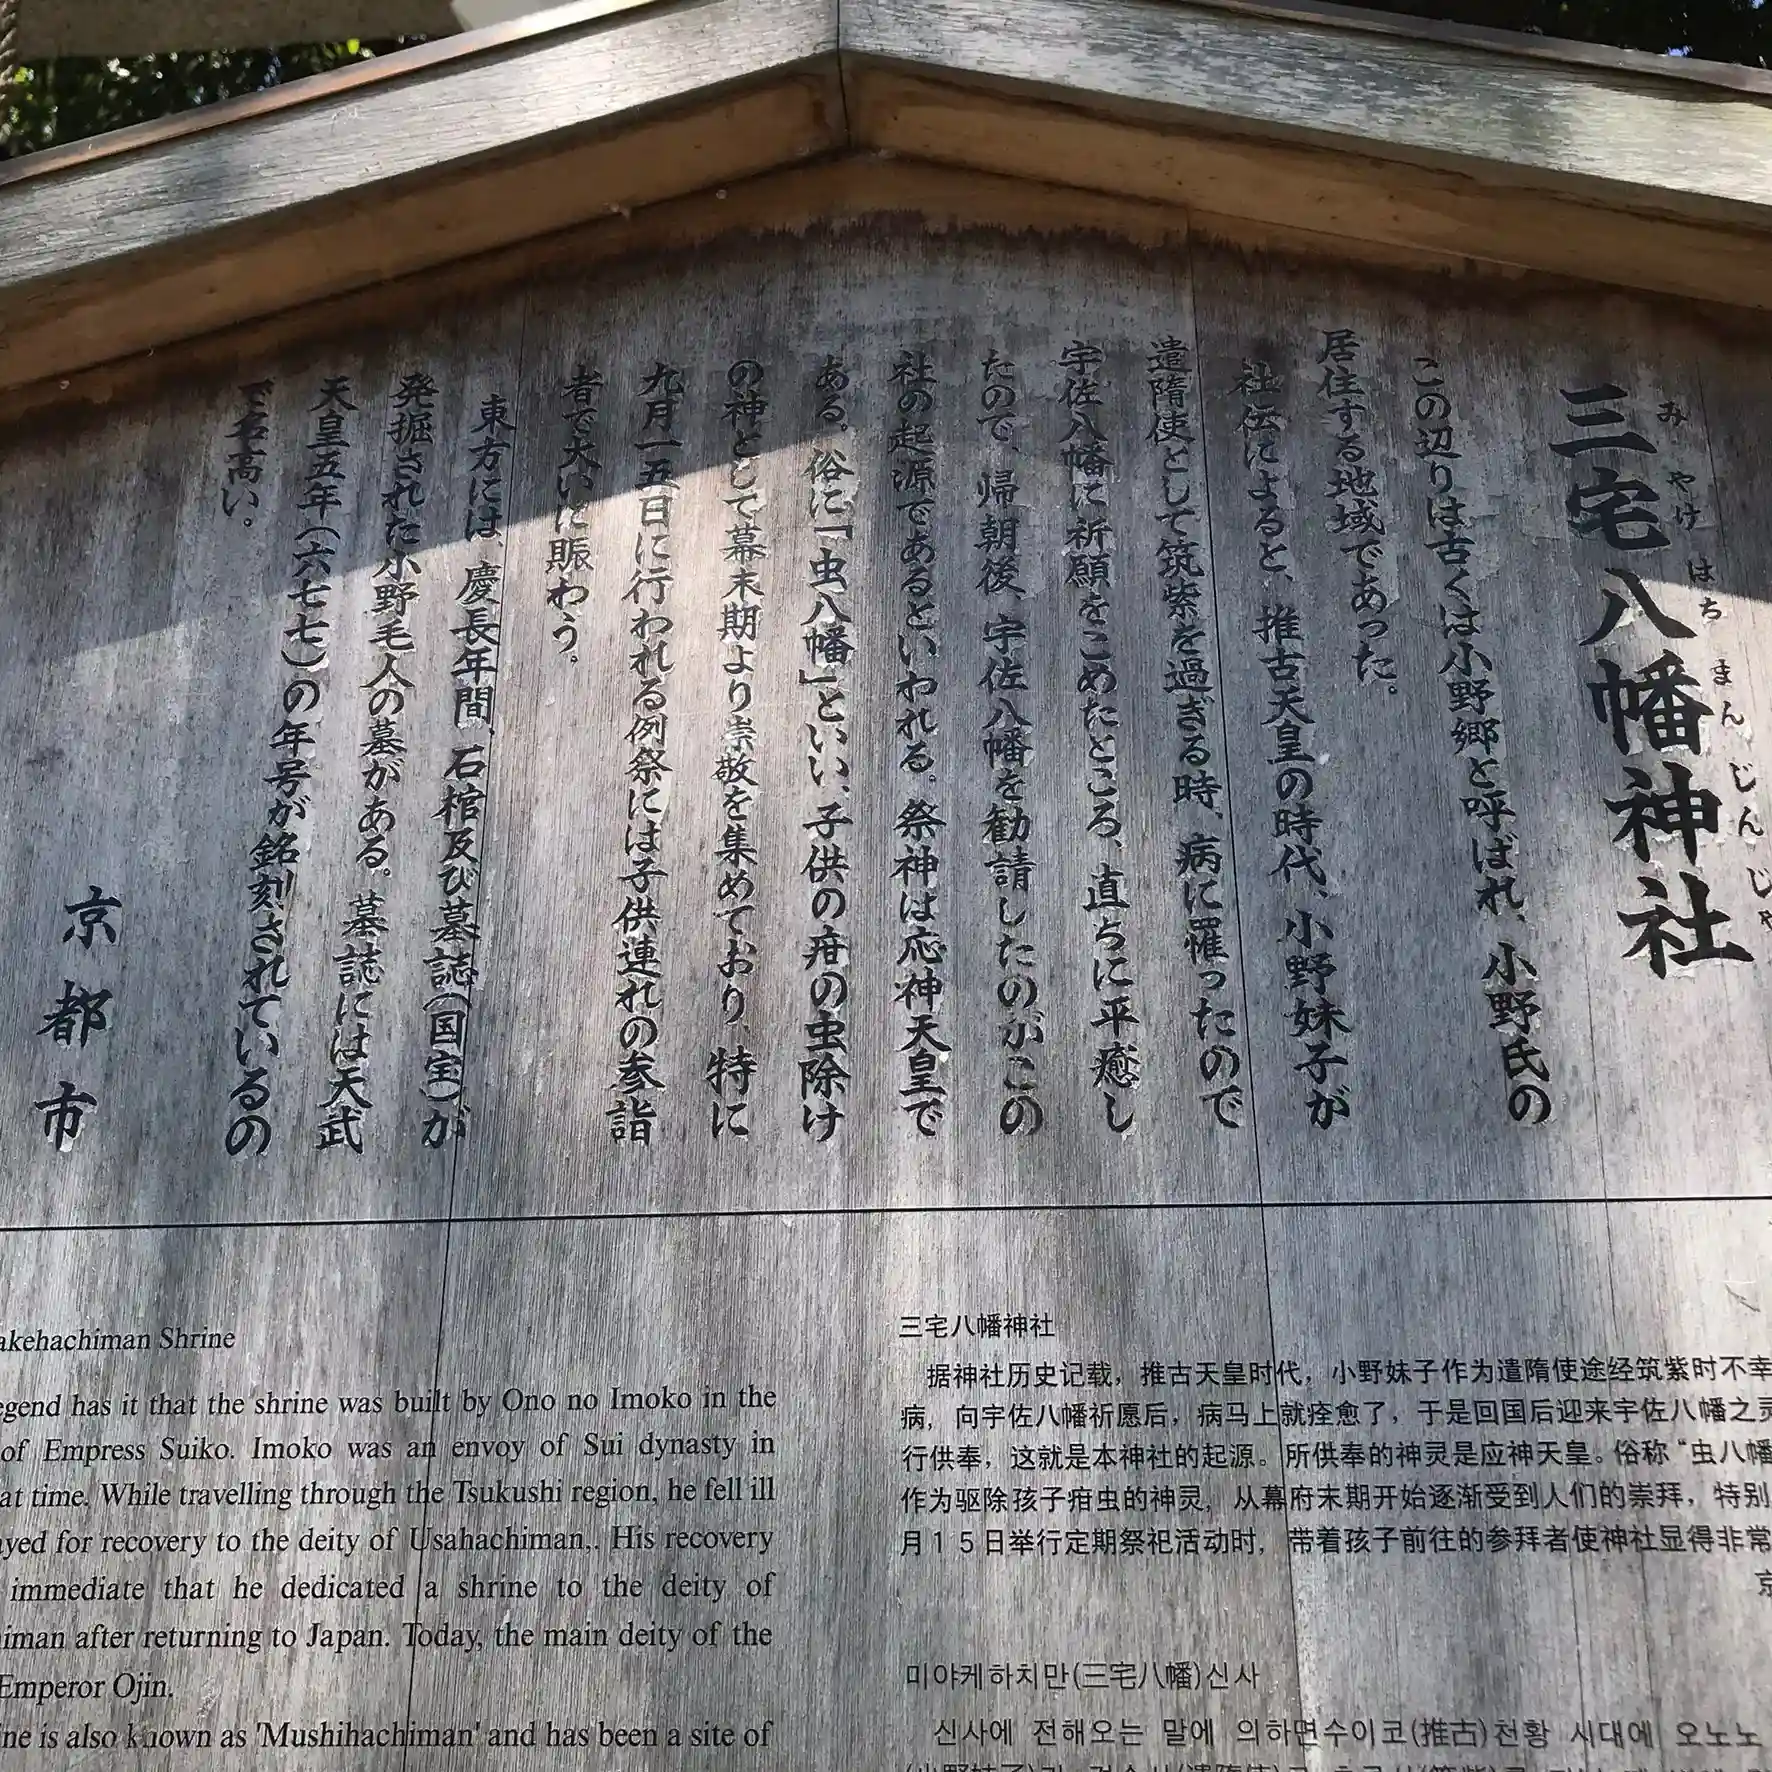 三宅八幡神社
みやけはちまんじんじゃ
この辺りは古くは小野郷と呼ばれ、小野氏の
居住する地域であった。
社伝によると、推古天皇の時代、小野妹子が
遣隋使として筑紫を過ぎる時、病に罹ったので
宇佐八幡に祈願をこめたところ、直ちに平癒し
たので、帰朝後、宇佐八幡を勧請したのがこの
社の起源であるといわれる。祭神は応神天皇で
ある。俗に「虫八幡」といい、子供の疳の虫除け
の神として幕末期より崇敬を集めており、特に
九月一五日に行われる例祭には子供連れの参詣
者で大いに賑わう。
東方には、慶長年間、石棺及び墓誌(国宝)が
発掘された小野毛人の墓がある。墓誌には天武
天皇五年(六七七)の年号が銘刻されているの
で名高い。
京都市
akehachiman Shrine
egend has it that the shrine was built by Ono no Imoko in the
of Empress Suiko. Imoko was an envoy of Sui dynasty in
at time. While travelling through the Tsukushi region, he fell ill
ayed for recovery to the deity of Usahachiman,. His recovery
immediate that he dedicated a shrine to the deity of
iman after returning to Japan. Today, the main deity of the
Emperor Ojin.
ine is also known as 'Mushihachiman' and has been a site of
三宅八幡神社
据神社历史记载，推古天皇时代，小野妹子作为遣隋使途经筑紫时不幸
病，向宇佐八幡祈愿后，病马上就痊愈了，于是回国后迎来宇佐八幡之灵
行供奉，这就是本神社的起源。所供奉的神灵是应神天皇。俗称“虫八幡
作为驱除孩子疳虫的神灵，从幕府末期开始逐渐受到人们的崇拜，特别
月15日举行定期祭祀活动时，带着孩子前往的参拜者使神社显得非常
미야케하치만(三宅八幡)신사
신사에 전해오는 말에 의하면수이코(推古)천황 시대에 오노노